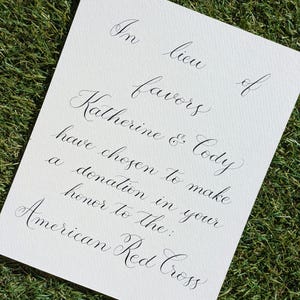 In lieu of
favors
Katherine & Cody
have chosen to make
a donation in your
honor to the:
American Red Cross